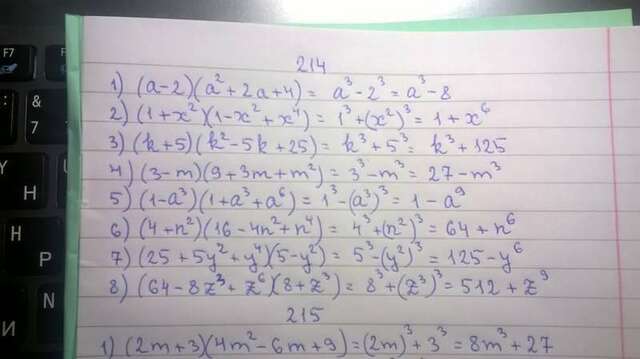 214
1) (a-2)(a²+2a+4) = a³-2³ = a³-8
2) (1+x²)(1-x²+x⁴) = 1³+(x²)³ = 1+x⁶
3) (k+5)(k²-5k+25) = k³+5³ = k³+125
4) (3-m)(9+3m+m²) = 3³-m³ = 27-m³
5) (1-a³)(1+a³+a⁶) = 1³-(a³)³ = 1-a⁹
6) (4+n²)(16-4n²+n⁴) = 4³+(n²)³ = 64+n⁶
7) (25+5y²+y⁴)(5-y²) = 5³-(y²)³ = 125-y⁶
8) (64-8z³+z⁶)(8+z³) = 8³+(z³)³ = 512+z⁹
215
1) (2m+3)(4m²-6m+9) = (2m)³+3³ = 8m³+27
F7
F8
&
7
Y
H
Н
P
N
И